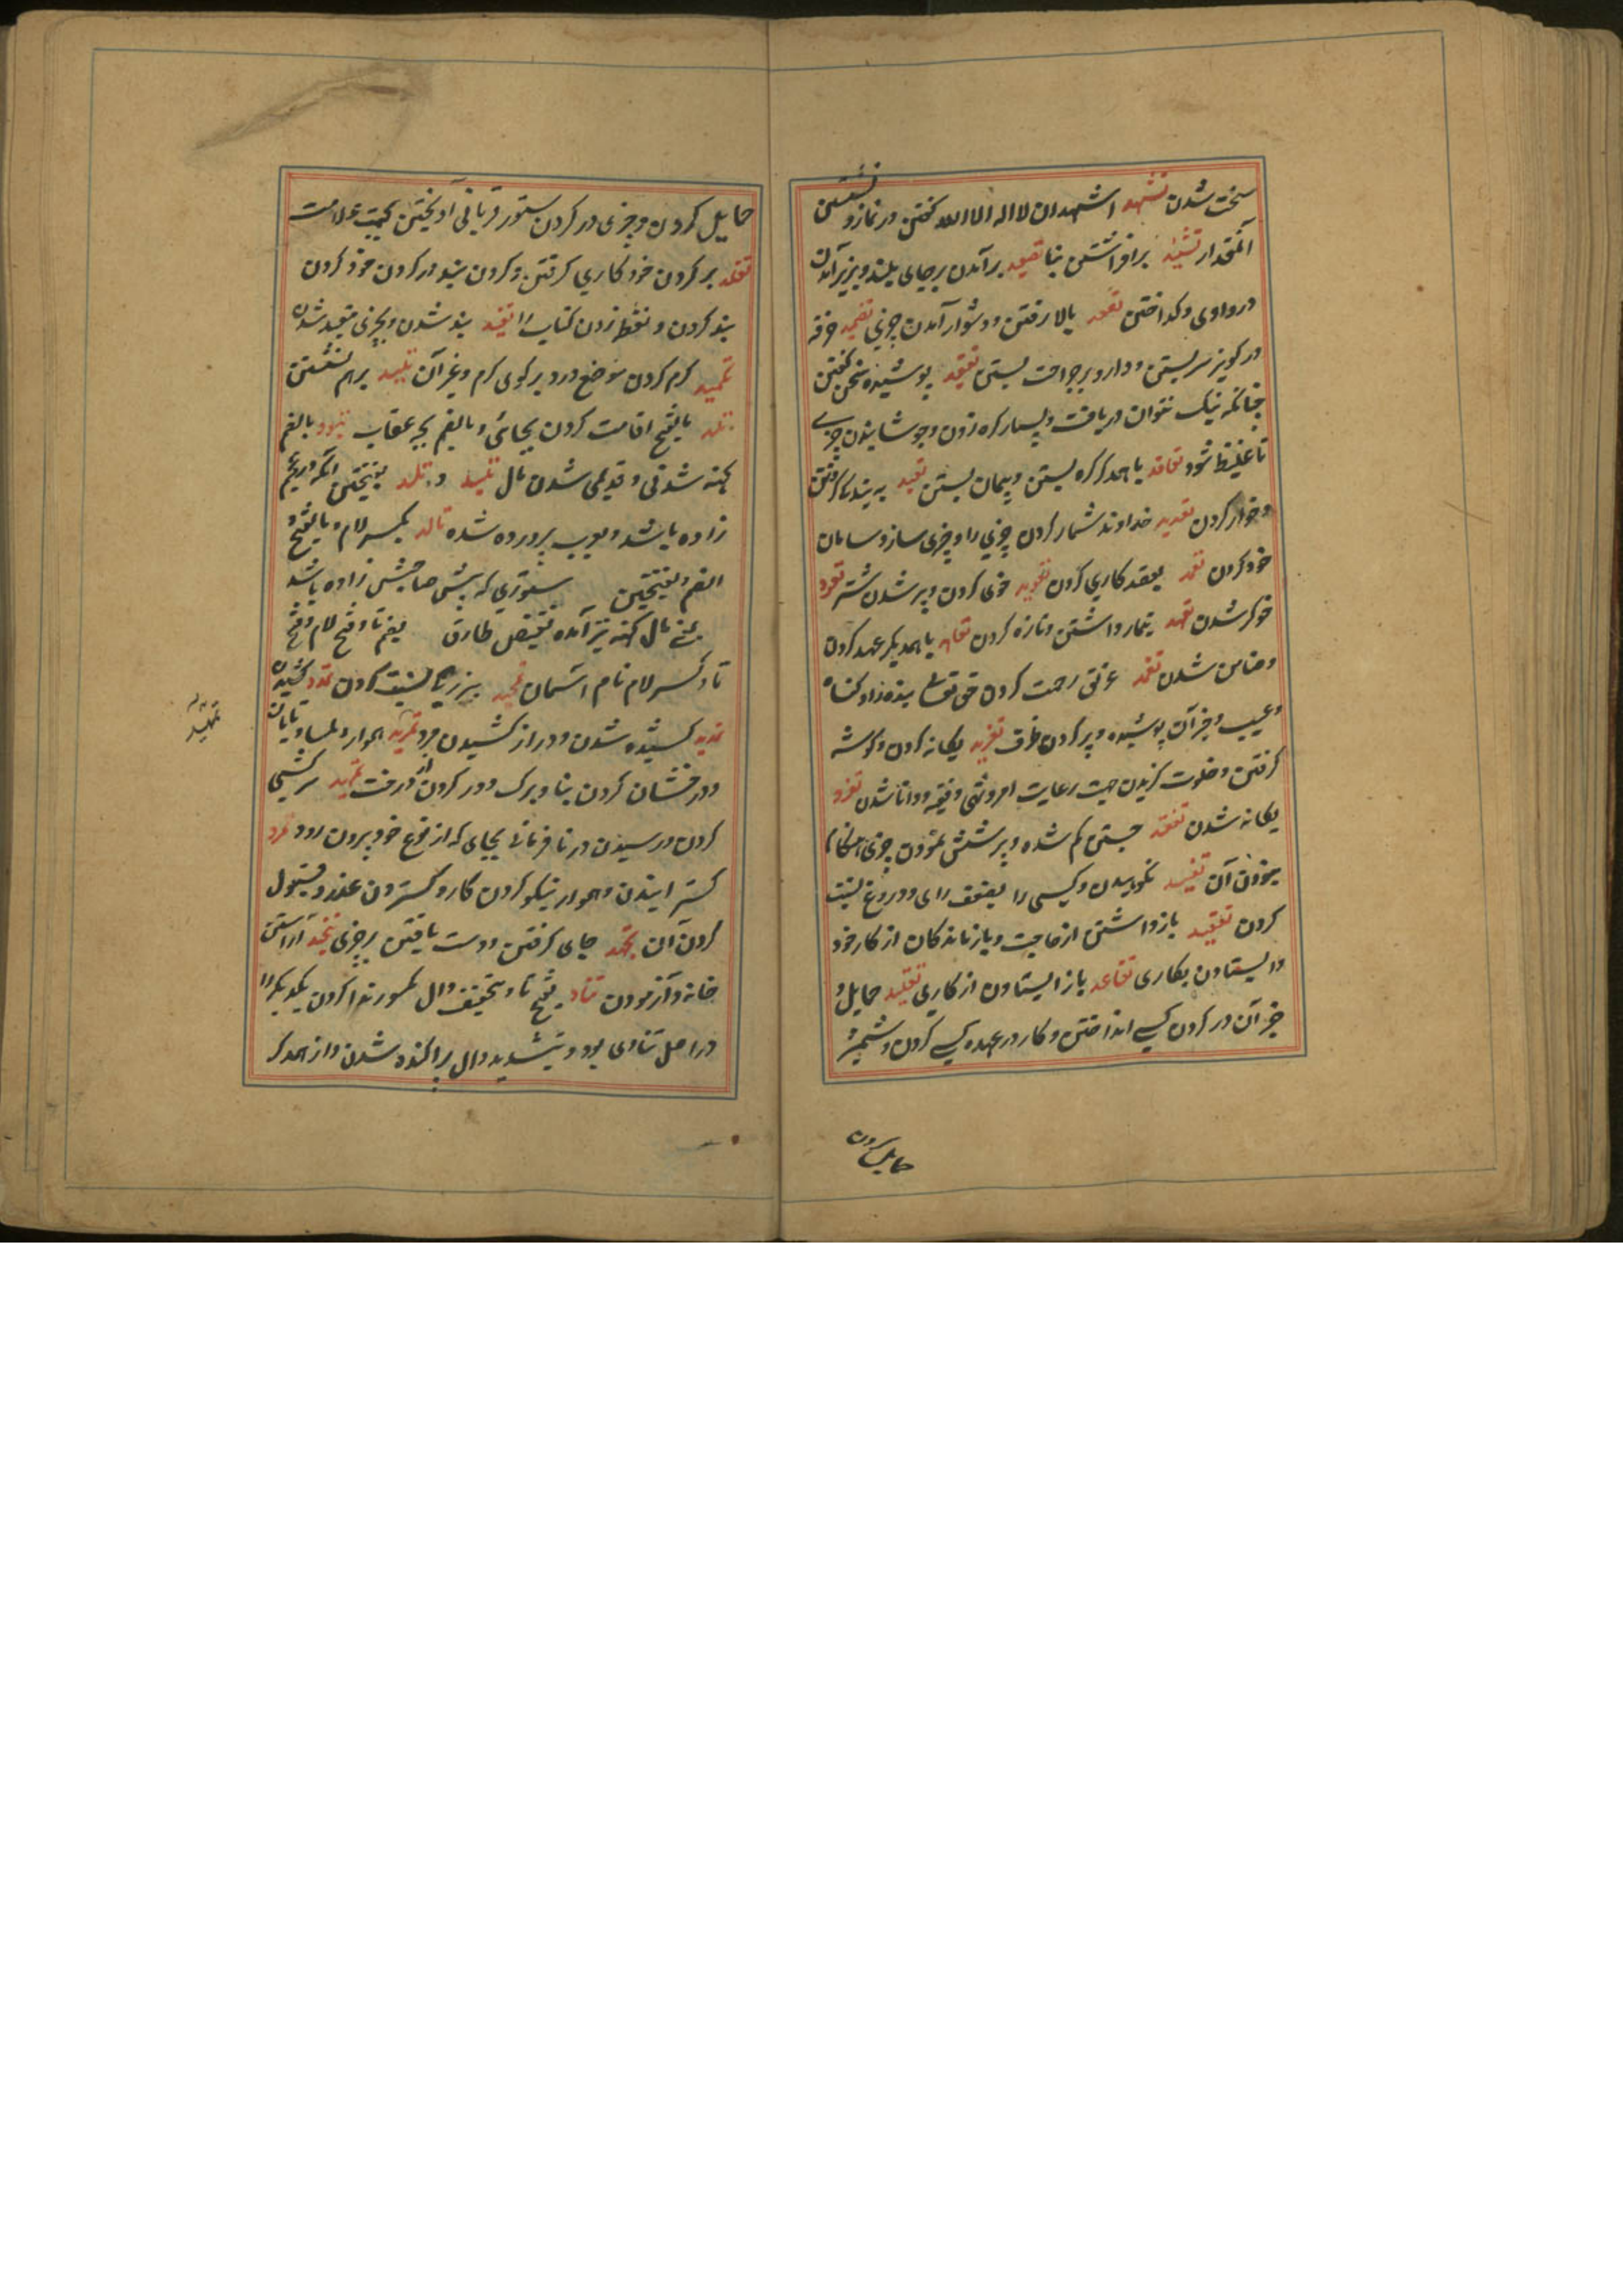 سخت شدن تشهد اشهد ان لا اله الا الله گفتن در نماز و نشستن
آنمقدار تشیید برافراشتن بنا تصعید برآمدن برجای بلند و بزیر آمدن
در وادی و کداختن تصعد بالا رفتن و دشوار آمدن چیزی تضمید خرقه
در کویز سر بستن و دارو بر جراحت بستن تعقید پوشیده سخن گفتن
چنانکه نیک نتوان دریافت و بسیار کره زدن و جوشانیدن چیزی
تا غلیظ شود تعاقد با همدکر کره بستن و پیمان بستن تعبد به بندکی کرفتن
و خوار کردن تعدید خداوند شمار کردن چیزی را و چیزی ساز و سامان
خود کردن تعمد بقصد کاری کردن تعوید خوی کردن و پیر شدن شتر تعود
خوکر شدن تعهد تیمار داشتن و تازه کردن تعاهد با همدیکر عهد کردن
و ضامن شدن تغمد غرق رحمت کردن حق تعالی بنده را و کناه
و عیب و جز آن پوشیده و پر کردن ظرف تفرید یکانه کردن و کوشه
کرفتن و خلوت کزیدن جهت رعایت امر و نهی و فقیه و دانا شدن تفرد
یکانه شدن تفقد جستن کم شده و پرسشش نمودن چیزی
نمودن آن تفنید نکوهیدن و کسی را بضعف رای و دروغ نسبت
کردن تقعید بازداشتن از حاجت و بازماندکان از کار خود
وا ایستادن بکاری تقاعد باز ایستادن از کاری تقلید حمایل و
جز آن در کردن کسی انداختن و کار در عهده کسی کردن و شمشیر
حمایل کردن
حمایل کردن و چیزی در کردن ستور قربانی آویختن بجهت علامت
تقلد بر کردن خود کاری کرفتن و کردن بند در کردن خود کردن
بند کردن و نقط زدن کتاب را تقید بند شدن و بچیزی مقید شدن
تکمید کرم کردن موضع درد بر کوی کرم و غیر آن تلبید بر هم نشستن
تلد بالفتح اقامت کردن بجائی و بالضم بچه عقاب تلود بالضم
کهنه شدنی و قدیمی شدن مال تلید و تلد بفتحتین آنکه در عجم
زاده باشد و بعرب پرورده شده تالد بکسر لام و بالفتح و
الضم و بفتحتین ستوری که پیش صاحبش زاده باشد
یعنی مال کهنه نیز آمده نقیض طارق بضم تا و فتح لام و فتح
تا و کسر لام نام آسمان تمجید ببزرکی نسبت کردن تمدد کشیدن
تمدید کشیده شدن و دراز کشیدن مرد تمرید هموار و لمسا و تابان
و درفشان کردن بنا و برک دور کردن از درخت تمرید سرکشی
کردن و رسیدن در نافرمانی بجای که از نوع خود بیرون رود تمرد
کسترانیدن و هموار نیکو کردن کار و کستردن عذر و قبول
کردن آن تمهد جای کرفتن و دست یافتن بر چیزی تنجید آراستن
خانه و آزمودن تناد بفتح تا و تخفیف دال مکسور ندا کردن یکدیکر را
در اصل تنادی بود و بتشدید دال پراکنده شدن و از همدکر
تمهید